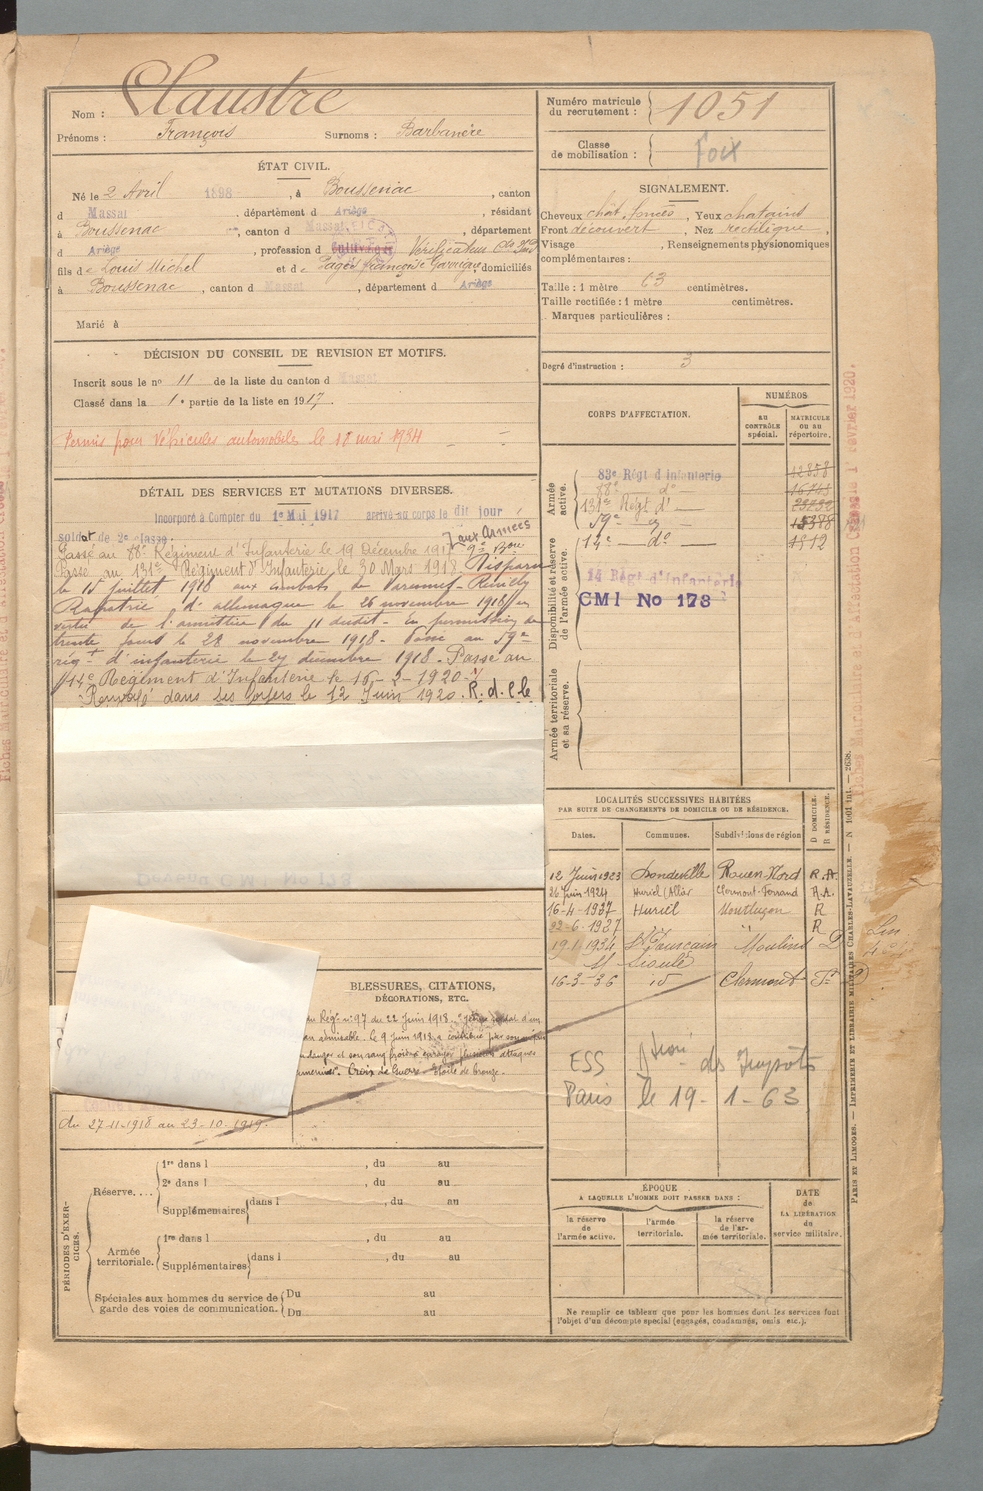 Nom : Claustre
Prénoms : François Surnoms : Barbanère
Numéro matricule du recrutement : 1051
Classe de mobilisation : Foix
ÉTAT CIVIL.
Né le 2 Avril 1898, à Boussenac, canton
d Massat, département d Ariège, résidant
à Boussenac, canton d Massat, département
d Ariège, profession d Cultivateur Vérificateur
fils de Louis Michel et de Pagès françoise Garrigue, domiciliés
à Boussenac, canton d Massat, département d Ariège
Marié à
SIGNALEMENT.
Cheveux chât. foncés, Yeux chatains
Front découvert, Nez rectiligne,
Visage, Renseignements physionomiques
complémentaires :
Taille : 1 mètre 63 centimètres.
Taille rectifiée : 1 mètre centimètres.
Marques particulières :
Degré d'instruction : 3
DÉCISION DU CONSEIL DE REVISION ET MOTIFS.
Inscrit sous le nº 11 de la liste du canton d Massat
Classé dans la 1e partie de la liste en 1917.
Permis pour Véhicules automobiles le 11 mai 1934
DÉTAIL DES SERVICES ET MUTATIONS DIVERSES.
Incorporé à Compter du 1er Mai 1917 arrivé au corps le dit jour
soldat de 2e classe.
Passé au 88e Régiment d'Infanterie le 19 Décembre 1917 aux Armées
Passé au 131e Régiment d'Infanterie le 30 Mars 1918. Disparu
le 15 juillet 1918 aux combats de
Rapatrié d'allemagne le 26 novembre 1918 en
vertu de l'armistice du 11 dudit. en permission de
trente jours le 28 novembre 1918. Passé au 59e
rég-t d'infanterie le 27 décembre 1918. Passé au
14e Régiment d'Infanterie le 16-2-1920.
Renvoyé dans ses foyers le 12 Juin 1920. R. d. l. le
Devenu CMI No 173
CORPS D'AFFECTATION.
NUMÉROS
AU CONTRÔLE spécial.
MATRICULE ou au répertoire.
Armée active.
83e Régt d'infanterie 12858
88e do 16748
131e Régt d°
59e 15378
14e do 1912
Disponibilité et réserve de l'armée active.
14 Régt d'infanterie
CMI No 173
Armée territoriale et sa réserve.
LOCALITÉS SUCCESSIVES HABITÉES
PAR SUITE DE CHANGEMENTS DE DOMICILE OU DE RÉSIDENCE.
Dates. Communes. Subdivisions de région
D DOMICILE. R RÉSIDENCE.
12 Juin 1923 Londeville Rouen-Nord R.A.
26 juin 1924 Huriel (Allier Clermont-Ferrand R.A.
16-4-1927 Huriel Montluçon R
22-6-1927 " R
19-1 1934 St Pourçain Moulins D
s/ Sioule
16-3-36 id Clermont Fd D
ESS des Impôts
Paris le 19-1-63
BLESSURES, CITATIONS,
DÉCORATIONS, ETC.
du Régt nº 97 du 22 Juin 1918. "jeune soldat d'un
admirable. le 9 juin 1918 a contribué par son mépris
danger et son sang froid à enrayer plusieurs attaques
ennemies". Croix de Guerre. Etoile de bronze.
du 27-11-1918 au 23-10-1919.
PÉRIODES D'EXERCICES.
Réserve....
1re dans l , du au
2e dans l , du au
Supplémentaires dans l , du au
Armée territoriale.
1re dans l , du au
Supplémentaires dans l , du au
Spéciales aux hommes du service de garde des voies de communication.
Du au
Du au
ÉPOQUE
A LAQUELLE L'HOMME DOIT PASSER DANS :
la réserve de l'armée active.
l'armée territoriale.
la réserve de l'armée territoriale.
DATE de LA LIBÉRATION du service militaire.
Ne remplir ce tableau que pour les hommes dont les services font
l'objet d'un décompte spécial (engagés, condamnés, omis, etc.).
PARIS ET LIMOGES. — IMPRIMERIE ET LIBRAIRIE MILITAIRES CHARLES-LAVAUZELLE.